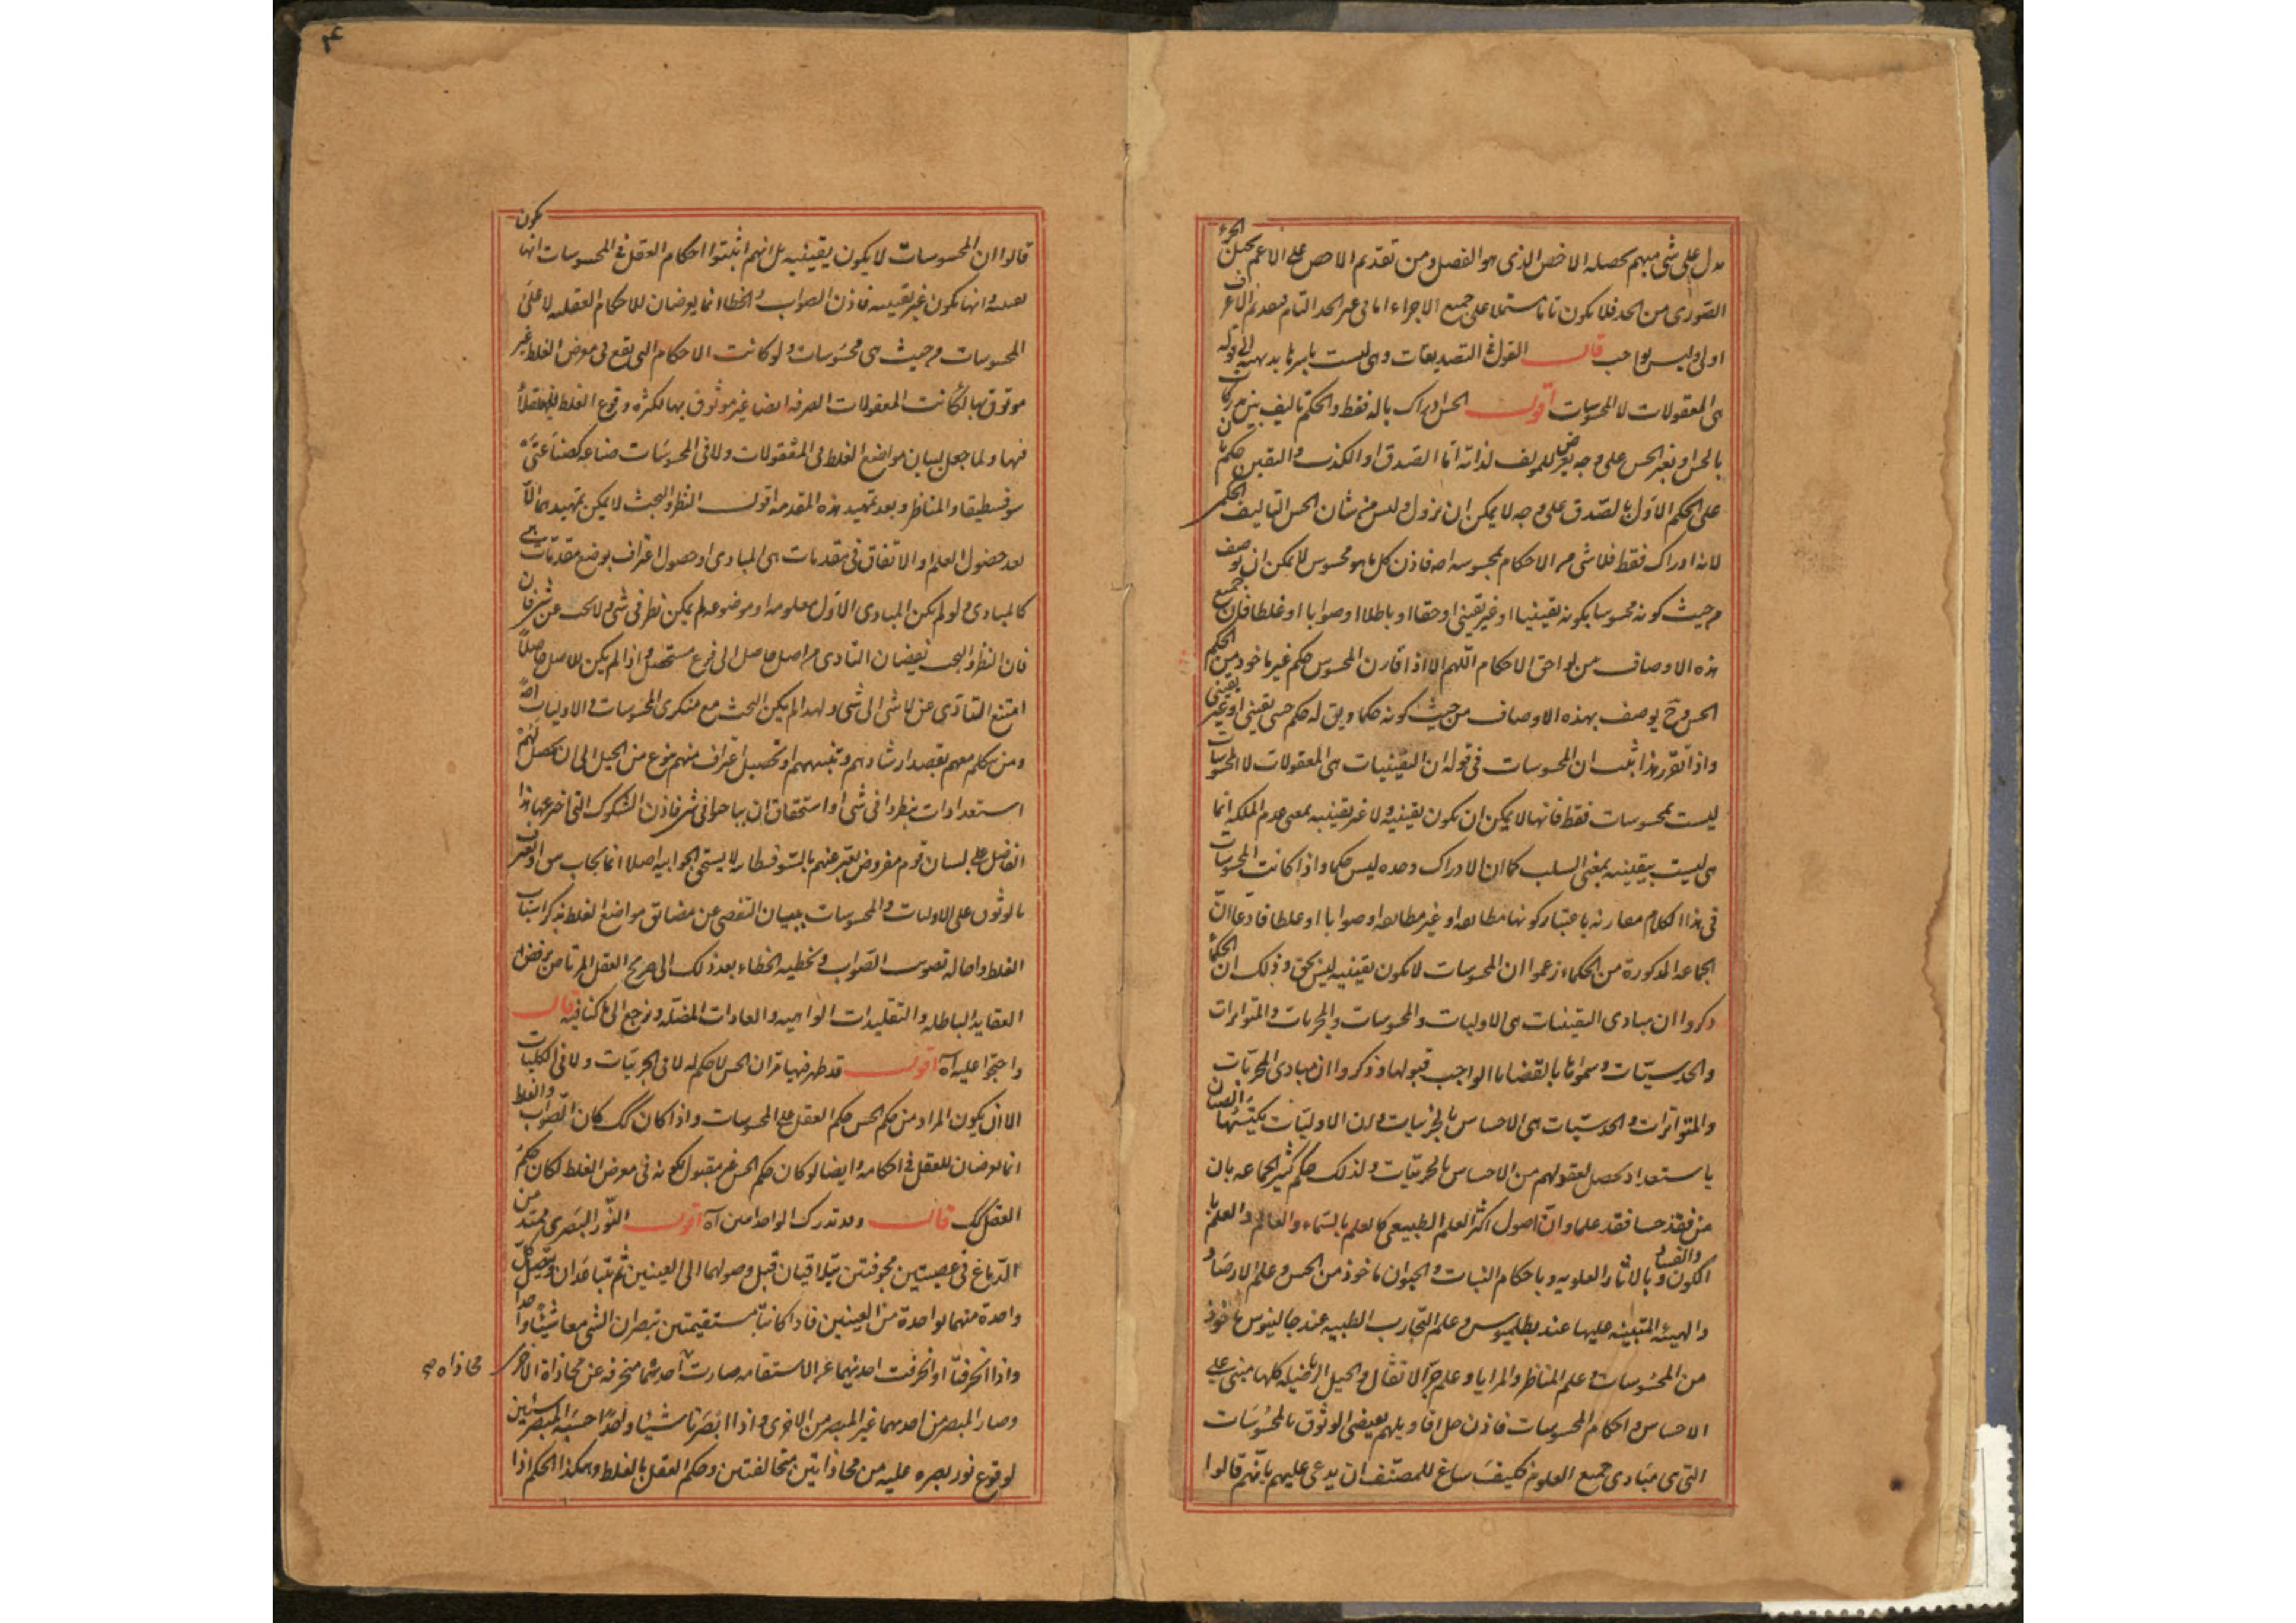 يدل على شئ مبهم يحصله الاخص الذى هو الفصل ومن تقديم الاخص على الاعم يختل الجزء
الصورى من الحد فلا يكون تاما مشتملا على جميع الاجزاء اما فى غير الحد التام فتقديم الاعرف
اولى وليس بواجب قال القول فى التصديقات وهى ليست باسرها بديهية الى قوله
هى المعقولات لا المحسوسات اقول الحس ادراك بالة فقط والحكم تاليف بين مدركات
بالحس او بغير الحس على وجه يعرض للمولف لذاته اما الصدق او الكذب واليقين حكم ثان
على الحكم الاول بالصدق على وجه لا يمكن ان يزول وليس من شان الحس التاليف الحكمى
لانه ادراك فقط فلا شئ من الاحكام بمحسوسة اصه فاذن كل ما هو محسوس لا يمكن ان يوصف
من حيث كونه محسوسا بكونه يقينيا او غير يقينى او حقا او باطلا او صوابا او غلطا فان جميع
هذه الاوصاف من لواحق الاحكام اللهم الا اذا قارن المحسوس حكم غير ماخوذ من الحكم
الحس وح يوصف بهذه الاوصاف من حيث كونه حكما ويق له حكم حسى يقينى او غير يقينى
واذا تقرر هذا ثبت ان المحسوسات فى قوله ان اليقينيات هى المعقولات لا المحسوسات
ليست بمحسوسات فقط فانها لا يمكن ان يكون يقينية ولا غير يقينية بمعنى عدم الملكة انما
هى ليست بيقينية بمعنى السلب كما ان الادراك وحده ليس حكما واذا كانت المحسوسات
فى هذا الكلام مقارنة باعتبار كونها مطابقة او غير مطابقة او صوابا او غلطا فادعا ان
الجماعة المذكورة من الحكماء زعموا ان المحسوسات لا يكون يقينية ليس بحق وذلك ان الحكماء
ذكروا ان مبادى اليقينيات هى الاوليات والمحسوسات والمجربات والمتواترات
والحدسيات وسموها بالقضايا الواجب قبولها وذكروا ان مبادى المجربات
والمتواترات والحدسيات هى الاحساس بالجزئيات وان الاوليات يكتسبها الصبيان
باستعداد يحصل لعقولهم من الاحساس بالجزئيات ولذلك حكم كبير الجماعة بان
من فقد حسا فقد علما وان اصول اكثر العلم الطبيعى كالعلم بالسماء والعالم والعلم با
الكون والفساد وبالاثار العلوية وباحكام النبات والحيوان ماخوذ من الحس وعلم الارصاد
والهيئة المبتنية عليها عند بطلميوس وعلم التجارب الطبية عند جالينوس ماخوذ
من المحسوسات وعلم المناظر والمرايا وعلم جر الاثقال والحيل الرياضية كلها مبنى على
الاحساس واحكام المحسوسات فاذن جل اقاويلهم يقتضى الوثوق بالمحسوسات
التى هى مبادى جميع العلوم فكيف ساغ للمصنف ان يدعى عليهم بانهم قالوا
قالوا ان المحسوسات لا يكون يقينية بل انهم اثبتوا احكام العقل فى المحسوسات انها يكون
يقينية وانها يكون غير يقينية فاذن الصواب والخطا انما يعرضان للاحكام العقلية لا على
المحسوسات من حيث هى محسوسات ولو كانت الاحكام التى يقع فى معرض الغلط غير
موثوق بها لكانت المعقولات الصرفة ايضا غير موثوق بها لكثرة وقوع الغلط للعقلاء
فيها ولما جعل لبيان مواضع الغلط فى المعقولات ولا فى المحسوسات صناعة كصناعتى
سوفسطيقا والمناظر وبعد تمهيد هذه المقدمة اقول النظر والبحث لا يمكن تمهيدهما الا
بعد حصول العلم او الاتفاق فى مقدمات هى المبادى او حصول اعتراف بوضع مقدمات هى
كالمبادى ولو لم يكن المبادى الاول معلومة او موضوعة لم يمكن نظر فى شئ ولا بحث عن شئ فان
فان النظر والبحث يقتضيان التادى من اصل حاصل الى فرع مستحصل واذا لم يكن الاصل حاصلا
امتنع التادى عن لا شئ الى شئ ولهذا لم يكن البحث مع منكرى المحسوسات والاوليات اصة
ومن يتكلم معهم بقصد ارشادهم وتنبيههم او تحصيل اعتراف منهم بنوع من الحيل الى ان يحصل لهم
استعداد ان ينظروا فى شئ او استحقاق ان يباحثوا فى شئ فاذن الشكوك التى اخترعها هذا
الفاضل على لسان قوم مفروض يعبر عنهم بالسوفسطائية لا يستحق الجواب اصلا انما يجاب من اراد ان يعتبر
بالوثوق على الاوليات والمحسوسات ببيان التفصى عن مضايق مواضع الغلط بذكر اسباب
الغلط واحالة تصويب الصواب وتخطية الخطاء بعد ذلك الى صريح العقل المرتاض برفض
العقايد الباطلة والتقليدات الواهية والعادات المضلة ونرجع الى ما كنا فيه قال
واحتجوا عليه اه اقول قد ظهر فيما مر ان الحس لا حكم له لا فى الجزئيات ولا فى الكليات
الا ان يكون المراد من حكم الحس حكم العقل على المحسوسات واذا كان كك كان الصواب والغلط
انما يعرضان للعقل فى احكامه وايضا لو كان حكم الحس غير مقبول لكونه فى معرض الغلط لكان حكم
العقل كك قال وقد تدرك الواحد اثنين اه اقول النور البصرى ممتد من
الدماغ فى عصبتين مجوفتين يتلاقيان قبل وصولهما الى العينين ثم يتباعدان ويتصل كل
واحدة منهما بواحدة من العينين فاذا كانتا مستقيمتين تبصران الشئ معا شيئا واحدا
واذا انحرفتا او انحرفت احديهما عن الاستقامة صارت احديهما منحرفة عن محاذاة الاخرى
محاذاه صح
وصار المبصر من احديهما غير المبصر من الاخرى واذا ابصرتا شيئا واحدا حسبه المبصر شيئين
لوقوع نور بصره عليه من محاذاتين متخالفتين وحكم العقل بالغلط وهكذا الحكم اذا